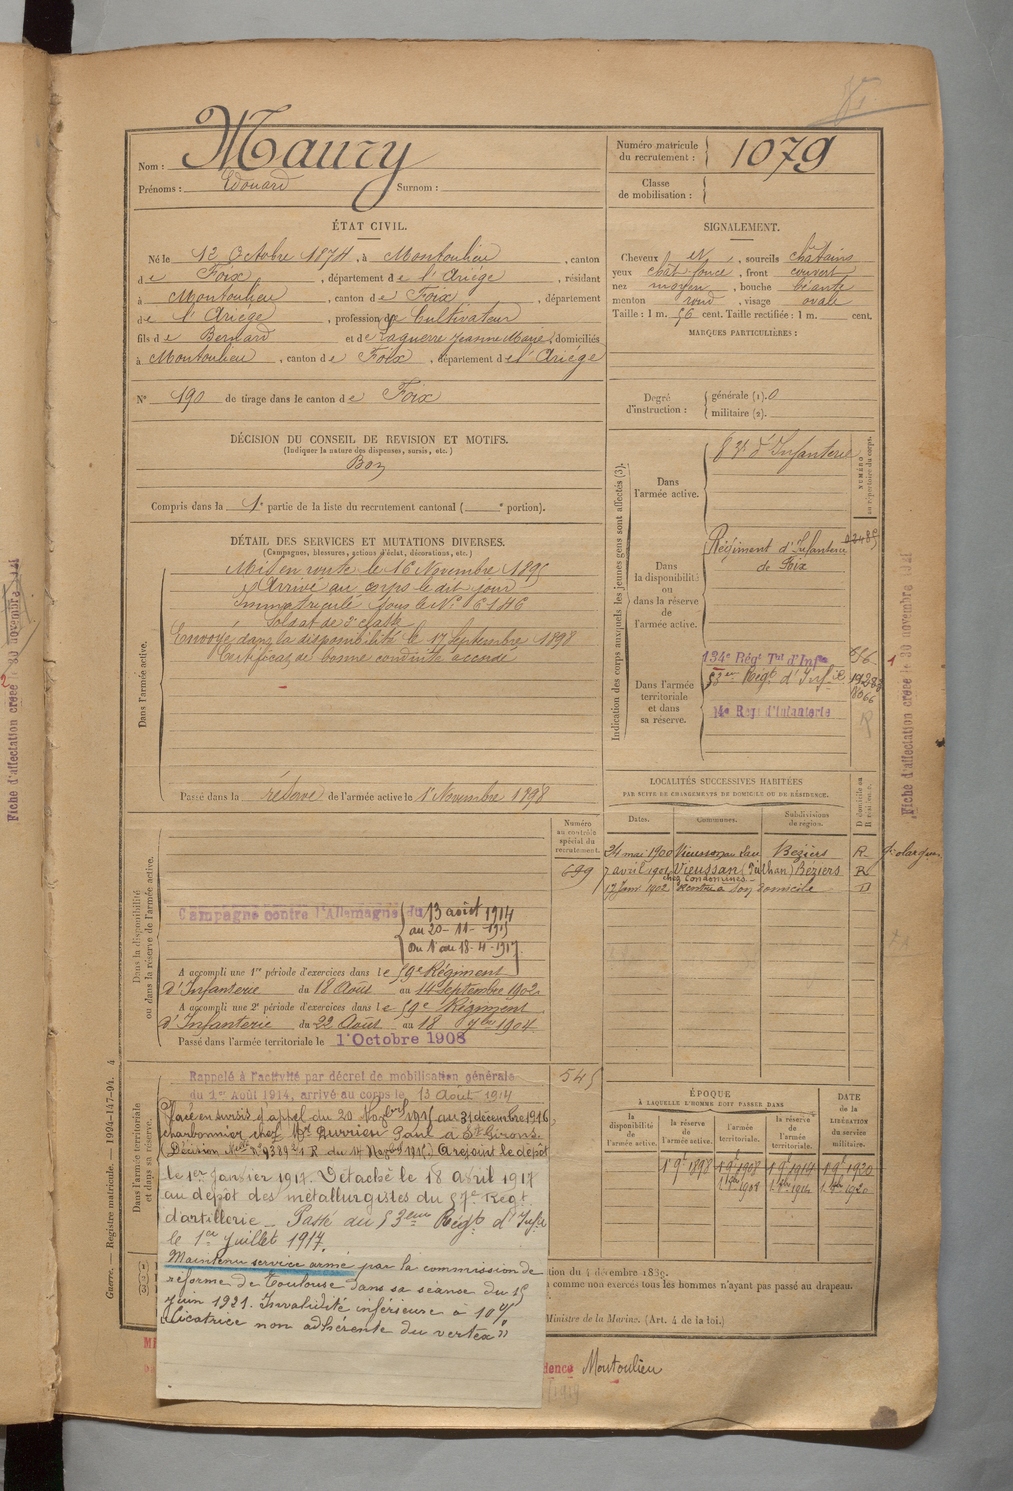 Nom : Maury
Prénoms : Edouard Surnom :
Numéro matricule du recrutement : 1079
Classe de mobilisation :
ÉTAT CIVIL.
Né le 12 Octobre 1874, à Montoulieu, canton
de Foix, département de l'Ariége, résidant
à Montoulieu, canton de Foix, département
de l'Ariége, profession de Cultivateur
fils de Bernard et de Laguerre Jeanne Marie, domiciliés
à Montoulieu, canton de Foix, département de l'Ariége
N° 190 de tirage dans le canton de Foix
SIGNALEMENT.
Cheveux et, sourcils châtains
yeux chât foncé, front couvert
nez moyen, bouche béante
menton rond, visage ovale
Taille : 1 m. 56 cent. Taille rectifiée : 1 m. cent.
MARQUES PARTICULIÈRES :
Degré d'instruction : générale (1). 0
militaire (2).
DÉCISION DU CONSEIL DE REVISION ET MOTIFS.
(Indiquer la nature des dispenses, sursis, etc.)
Bon
Compris dans la 1e partie de la liste du recrutement cantonal ( e portion).
DÉTAIL DES SERVICES ET MUTATIONS DIVERSES.
(Campagnes, blessures, actions d'éclat, décorations, etc.)
Dans l'armée active.
Mis en route le 16 Novembre 1895
Arrivé au corps le dit jour
Immatriculé sous le N°
Soldat de 2e classe
Envoyé dans la disponibilité le 17 Septembre 1898
Certificat de bonne conduite accordé
Passé dans la réserve de l'armée active le 1er Novembre 1898
Indication des corps auxquels les jeunes gens sont affectés (3).
NUMÉRO au répertoire du corps.
Dans l'armée active.
d'Infanterie
Dans la disponibilité ou dans la réserve de l'armée active.
Régiment d'Infanterie
de Foix
Dans l'armée territoriale et dans sa réserve.
134e Régt Tal d'Infie
53e Régt d'Infie
14e Regt d'Infanterie
LOCALITÉS SUCCESSIVES HABITÉES
PAR SUITE DE CHANGEMENTS DE DOMICILE OU DE RÉSIDENCE.
Dates. Communes. Subdivisions de région. D domicile ou R résidence.
24 mai 1900 Vieussan Beziers R
7 avril 1901 Vieussan Beziers R
Rentré à son domicile D
Dans la disponibilité ou dans la réserve de l'armée active.
Numéro au contrôle spécial du recrutement.
699
Campagne contre l'Allemagne du 13 août 1914
au 20-11-1915
Du 1er au 18-4-1917
A accompli une 1re période d'exercices dans le 59e Régiment
d'Infanterie du 18 Août au 14 Septembre 1902
A accompli une 2e période d'exercices dans le 59e Régiment
d'Infanterie du 22 Août au 18 7bre 1904
Passé dans l'armée territoriale le 1er Octobre 1908
Dans l'armée territoriale et dans sa réserve.
545
Rappelé à l'activité par décret de mobilisation générale
du 1er Août 1914, arrivé au corps le 13 Août 1914
Placé en sursis d'appel du 20 Novbre 1915 au 31 décembre 1916,
charbonnier chez Mr Durrieu Paul à St Girons.
Décision R. du 14 Novbre 1915. A rejoint le dépôt
le 1er Janvier 1917. Détaché le 18 avril 1917
au dépôt des métallurgistes du 57e Régt
d'artillerie _ Passé au 53eme Régt d'Infie
le 1er Juillet 1917.
Maintenu service armé par la commission de
réforme de Toulouse dans sa séance du 15
juin 1921. Invalidité inférieure à 10 %
"Cicatrice non adhérente du vertex"
ÉPOQUE
À LAQUELLE L'HOMME DOIT PASSER DANS
la disponibilité de l'armée active. la réserve de l'armée active. l'armée territoriale. la réserve de l'armée territoriale. DATE de la LIBÉRATION du service militaire.
1er 9e 1898 1er 9e 1908 1er 9e 1914 1er 9e 1920
tion du 4 décembre 1889.
comme non exercés tous les hommes n'ayant pas passé au drapeau.
Ministre de la Marine. (Art. 4 de la loi.)
dence Montoulieu
Guerre. — Registre matricule. 1994-147-94. 4
Fiche d'affectation créée le 30 novembre 1921
Fiche d'affectation créée le 30 novembre 1921